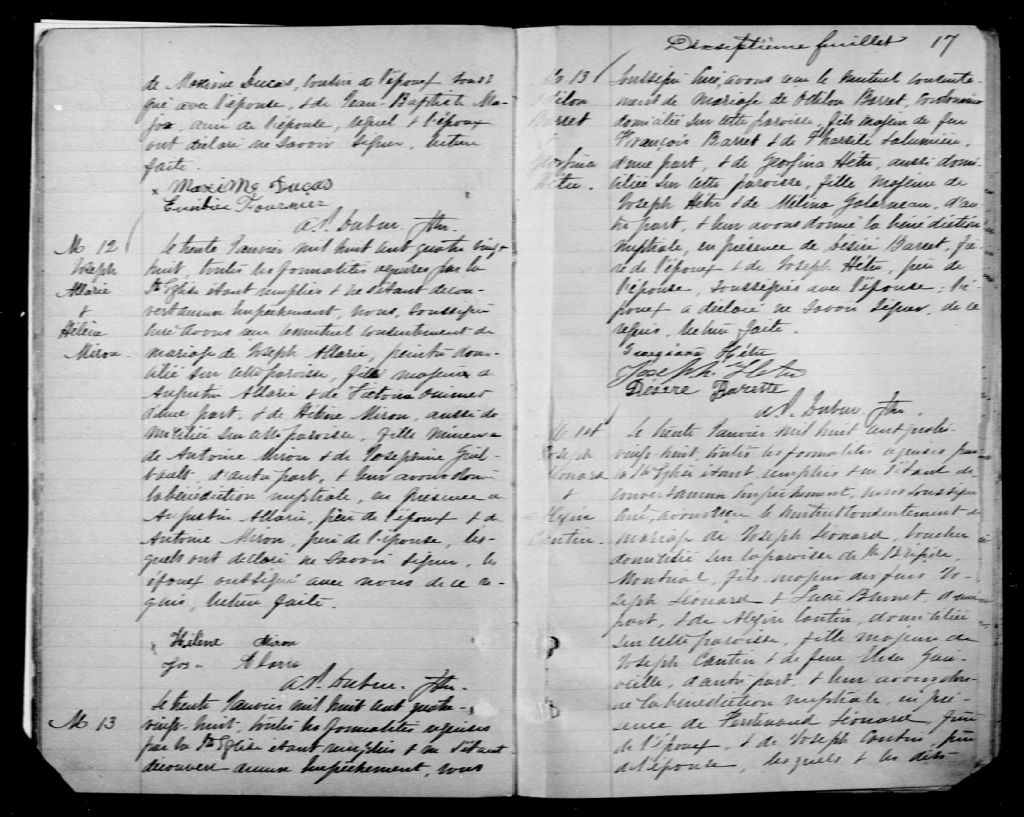 de Maxime Ducas, cousin de l'époux soussi
gné avec l'épouse, & de Jean-Baptiste Ma-
jor, ami de l'épouse, lequel & l'époux
ont déclaré ne savoir signer, lecture
faite.
x Maxime Ducas
Fournier
A. P. Dubuc. Ptre.
M 12
Joseph
Allarie
&
Hélène
Miron.
Le trente Janvier mil huit cent quatre vingt
huit, toutes les formalités requises par la
Ste Eglise étant remplies & ne s'étant décou-
vert aucun empêchement, nous, soussigné
curé avons reçu le mutuel consentement de
mariage de Joseph Allarie, peintre domi-
cilié sur cette paroisse, fils majeur de
Augustin Allarie & de Ouimet
d'une part, & de Hélène Miron, aussi do-
miciliée sur cette paroisse, fille mineure
de Antoine Miron & de Josephine Guil-
bault, d'autre part, & leur avons donné
la bénédiction nuptiale, en présence de
Augustin Allarie, père de l'époux & de
Antoine Miron, père de l'épouse, les-
quels ont déclaré ne savoir signer, les
époux ont signé avec nous de ce re-
quis, lecture faite.
Hélène Miron
Jos Alarie
A. P. Dubuc. Ptre.
M 13
Le trente Janvier mil huit cent quatre-
vingt-huit, toutes les formalités requises
par la Ste Eglise étant remplies & ne s'étant
découvert aucun empêchement, nous
Dixseptième feuillet 17
M 13
Odilon
Barret
&
Georgina
Hétu.
soussigné curé, avons reçu le mutuel consente-
ment de mariage de Odilon Barret, cordonnier
domicilié sur cette paroisse, fils majeur de feu
François Barret & de Tharsile Lalumière,
d'une part, & de Georgina Hétu, aussi domi-
ciliée sur cette paroisse, fille majeure de
Joseph Hétu & de Mélina Galarneau, d'au-
tre part, & leur avons donné la bénédiction
nuptiale, en présence de Désiré Barret, frè-
re de l'époux & de Joseph Hétu, père de
l'épouse, soussignés avec l'épouse; l'é-
poux a déclaré ne savoir signer, de ce
requis, lecture faite.
Georgiana Hétu
Joseph Hetu
Désere Barette
A. P. Dubuc. Ptre.
M 14
Joseph
Léonard
&
Alexire
Cantin.
Le trente Janvier mil huit cent quatre-
vingt-huit, toutes les formalités requises par
la Ste Eglise étant remplies & ne s'étant dé-
couvert aucun empêchement, nous soussigné
curé, avons reçu le mutuel consentement de
mariage de Joseph Léonard, boucher
domicilié sur la paroisse de Ste Brigide,
Montréal, fils majeur des feus Jo-
seph Léonard & Lucie Brunet d'une
part, & de Alexire Cantin, domiciliée
sur cette paroisse, fille majeure de
Joseph Cantin & de feue Elisa
d'autre part, & leur avons don-
né la bénédiction nuptiale, en pré-
sence de Ferdinand Léonard, frère
de l'époux, & de Joseph Cantin, père
de l'épouse, lesquels & les dits